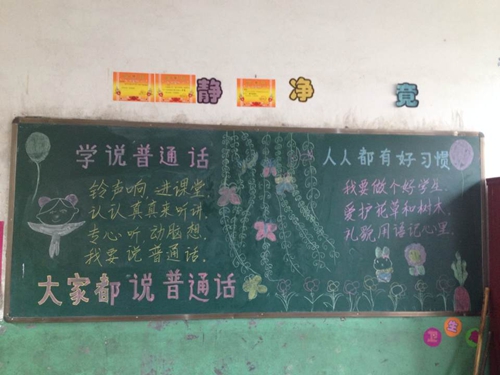 静 净 竟
学说普通话
铃声响 进课堂
认认真真来听讲
专心听 动脑想
我要说普通话.
大家都说普通话
人人都有好习惯
我要做个好学生.
爱护花草和树木.
礼貌用语记心里.
卫生角